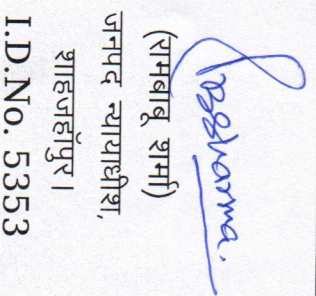 RBSharma.
(रामबाबू शर्मा)
जनपद न्यायाधीश,
शाहजहाँपुर।
I.D.No. 5353